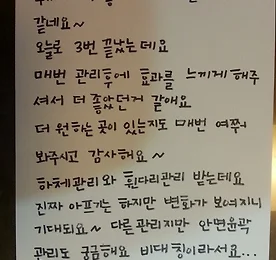 같네요~
오늘로 3번 끝났는데요
매번 관리후에 효과를 느끼게 해주
셔서 더 좋았던거 같애요
더 원하는 곳이 있는지도 매번 여쭤
봐주시고 감사해요~
하체관리와 휜다리관리 받는데요
진짜 아프기는 하지만 변화가 보여지니
기대되요~ 다른관리지만 안면윤곽
관리도 궁금해요 비대칭이라서요...